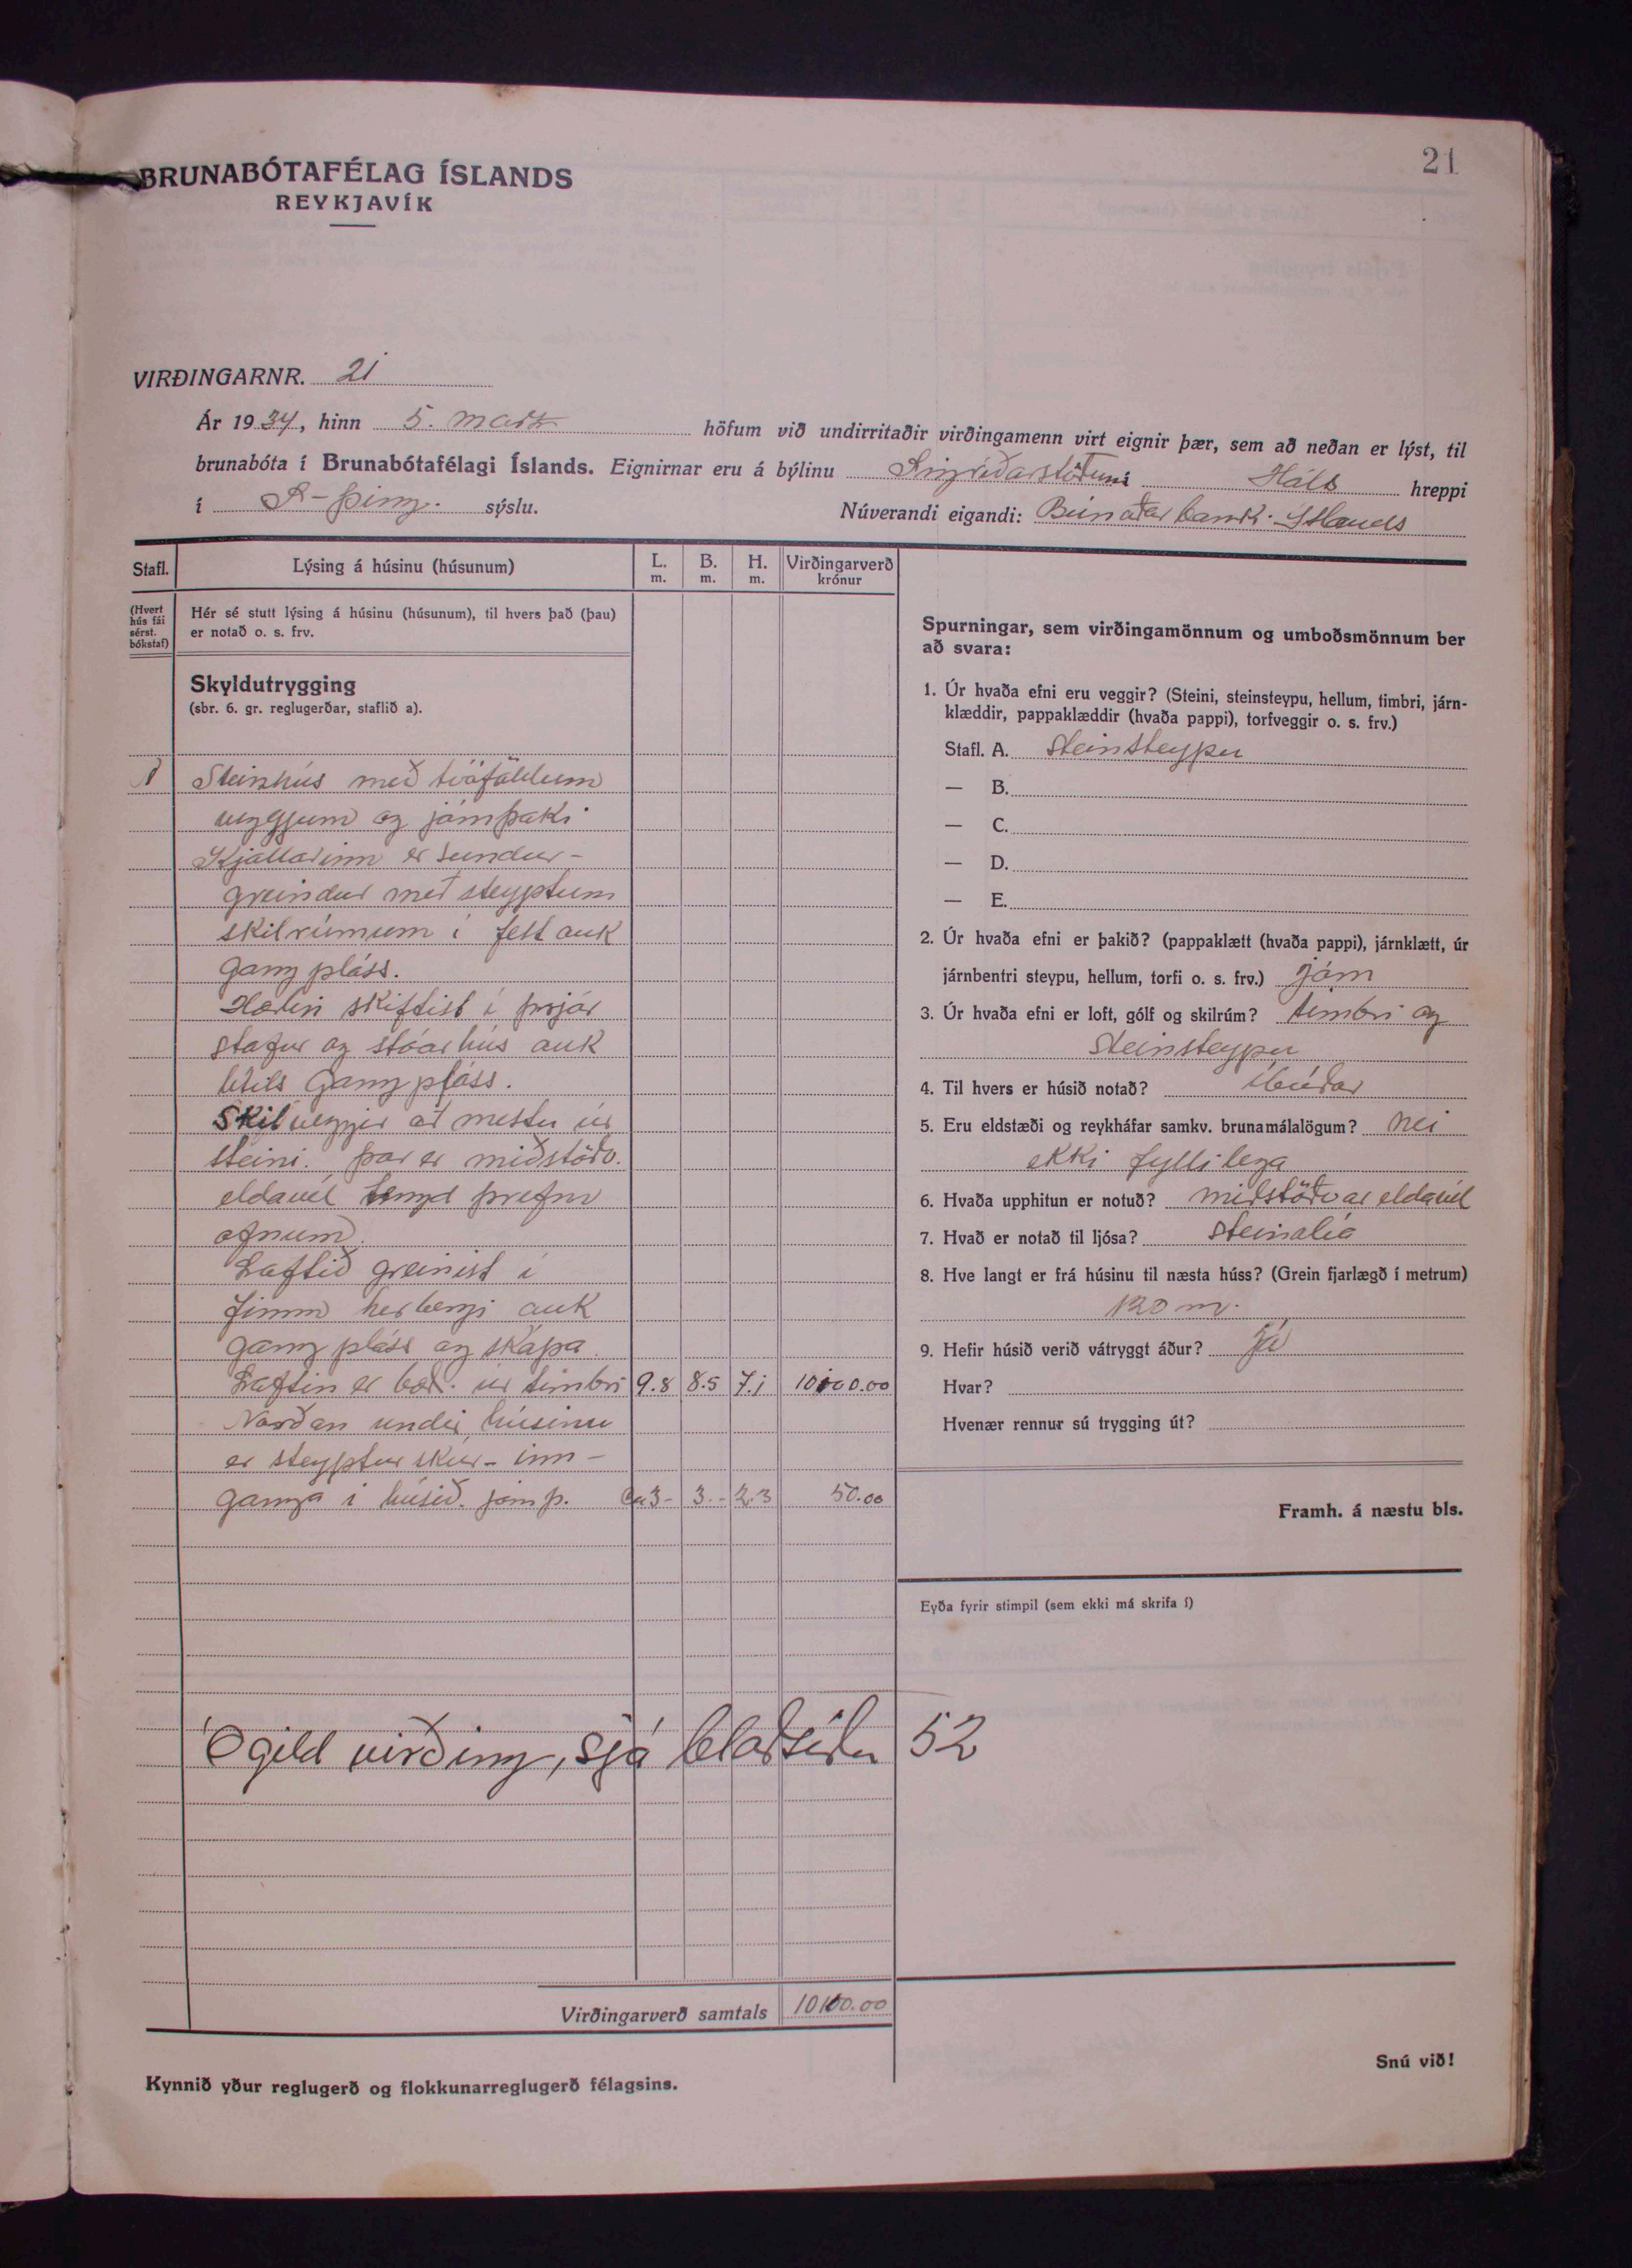 21
BRUNABÓTAFÉLAG ÍSLANDS
REYKJAVÍK
VIRÐINGARNR. 21
Ár 1934, hinn 5. marz höfum við undirritaðir virðingamenn virt eignir þær, sem að neðan er lýst, til
brunabóta í Brunabótafélagi Íslands. Eignirnar eru á býlinu Sigríðarstöðum í Háls hreppi
í S-þing. sýslu. Núverandi eigandi: Búnaðarbanki Íslands
Stafl. Lýsing á húsinu (húsunum) L. m. B. m. H. m. Virðingarverð krónur
(Hvert hús fái sérst. bókstaf)
Hér sé stutt lýsing á húsinu (húsunum), til hvers það (þau)
er notað o. s. frv.
Skyldutrygging
(sbr. 6. gr. reglugerðar, staflið a).
A Steinhús með tvöföldum
veggjum og járnþaki
Kjallarinn er sundur-
greindur með steyptum
skilrúmum í fell auk
gangpláss.
Hæðin skiftist í þrjár
stofur og stóarhús auk
lítils gangpláss.
Skilveggir að mestu úr
steini. þar er miðstöðv.
eldavél tengd þrem
ofnum.
Loftið greinist í
fimm herbergi auk
gangpláss og skápa.
Loftin er bæði úr timbri 9.8 8.5 7.1 10100.00
Norðan undir húsinu
er steyptur skúr - inn-
ganga í húsið. járnþ. Ca 3- 3.- 2.3 50.00
Ógild virðing, sjá blaðsíðu 52
Virðingarverð samtals 10100.00
Kynnið yður reglugerð og flokkunarreglugerð félagsins.
Spurningar, sem virðingamönnum og umboðsmönnum ber
að svara:
1. Úr hvaða efni eru veggir? (Steini, steinsteypu, hellum, timbri, járn-
klæddir, pappaklæddir (hvaða pappi), torfveggir o. s. frv.)
Stafl. A. Steinsteypu
— B.
— C.
— D.
— E.
2. Úr hvaða efni er þakið? (pappaklætt (hvaða pappi), járnklætt, úr
járnbentri steypu, hellum, torfi o. s. frv.) járn
3. Úr hvaða efni er loft, gólf og skilrúm? timbri og
Steinsteypu
4. Til hvers er húsið notað? íbúðar
5. Eru eldstæði og reykháfar samkv. brunamálalögum? nei
ekki fyllilega
6. Hvaða upphitun er notuð? miðstöðvar eldavél
7. Hvað er notað til ljósa? steinolía
8. Hve langt er frá húsinu til næsta húss? (Grein fjarlægð í metrum)
120 m.
9. Hefir húsið verið vátryggt áður? já
Hvar?
Hvenær rennur sú trygging út?
Framh. á næstu bls.
Eyða fyrir stimpil (sem ekki má skrifa í)
Snú við!